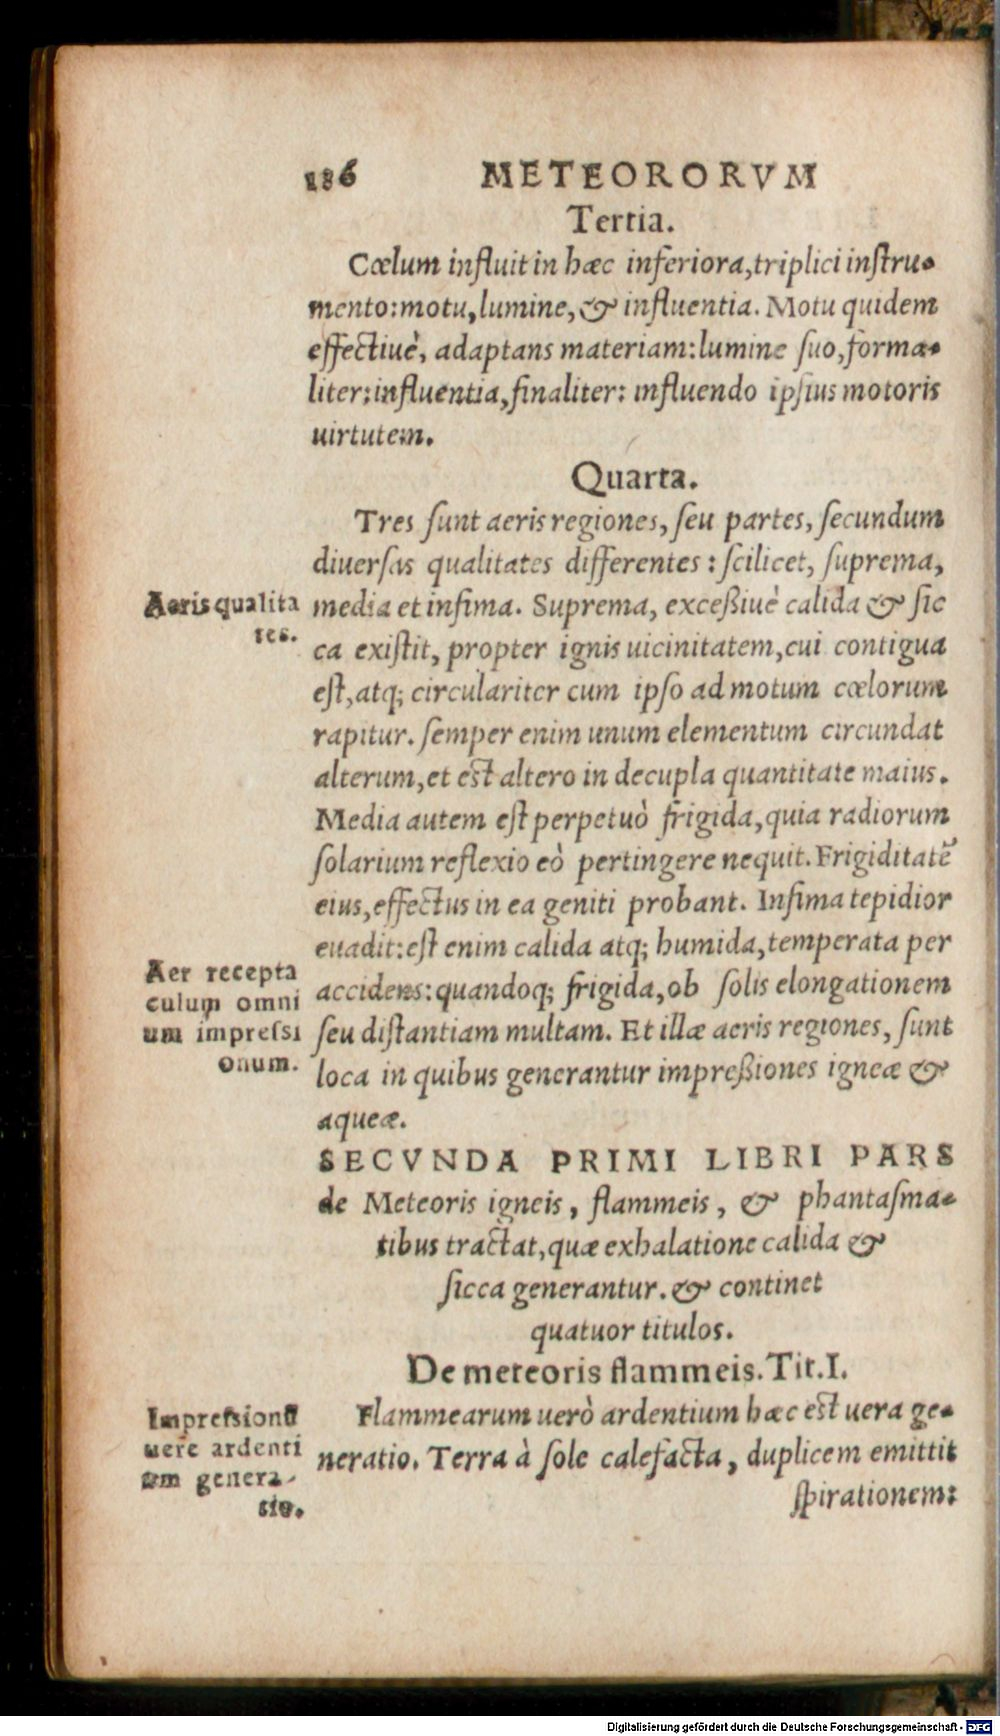 186 METEORORVM
Tertia.
Cœlum influit in hæc inferiora, triplici inſtru-
mento: motu, lumine, & influentia. Motu quidem
effectiuè, adaptans materiam: lumine ſuo, forma-
liter: influentia, finaliter: influendo ipſius motoris
uirtutem.
Quarta.
Tres ſunt aeris regiones, ſeu partes, ſecundum
diuerſas qualitates differentes: ſcilicet, ſuprema,
Aeris qualita
tes.
media et infima. Suprema, exceßiuè calida & ſic
ca exiſtit, propter ignis uicinitatem, cui contigua
eſt, atq; circulariter cum ipſo ad motum cœlorum
rapitur. ſemper enim unum elementum circundat
alterum, et eſt altero in decupla quantitate maius.
Media autem eſt perpetuò frigida, quia radiorum
ſolarium reflexio eò pertingere nequit. Frigiditatē
eius, effectus in ea geniti probant. Infima tepidior
euadit: eſt enim calida atq; humida, temperata per
Aer recepta
culum omni
um impreſsi
onum.
accidens: quandoq; frigida, ob ſolis elongationem
ſeu diſtantiam multam. Et illæ aeris regiones, ſunt
loca in quibus generantur impreßiones igneæ &
aqueæ.
SECVNDA PRIMI LIBRI PARS
de Meteoris igneis, flammeis, & phantaſma-
tibus tractat, quæ exhalatione calida &
ſicca generantur. & continet
quatuor titulos.
De meteoris flammeis. Tit. I.
Impreſsionū
uere ardenti
um genera-
tio.
Flammearum uerò ardentium hæc eſt uera ge-
neratio. Terra à ſole calefacta, duplicem emittit
ſpirationem:
Digitalisierung gefördert durch die Deutsche Forschungsgemeinschaft - DFG